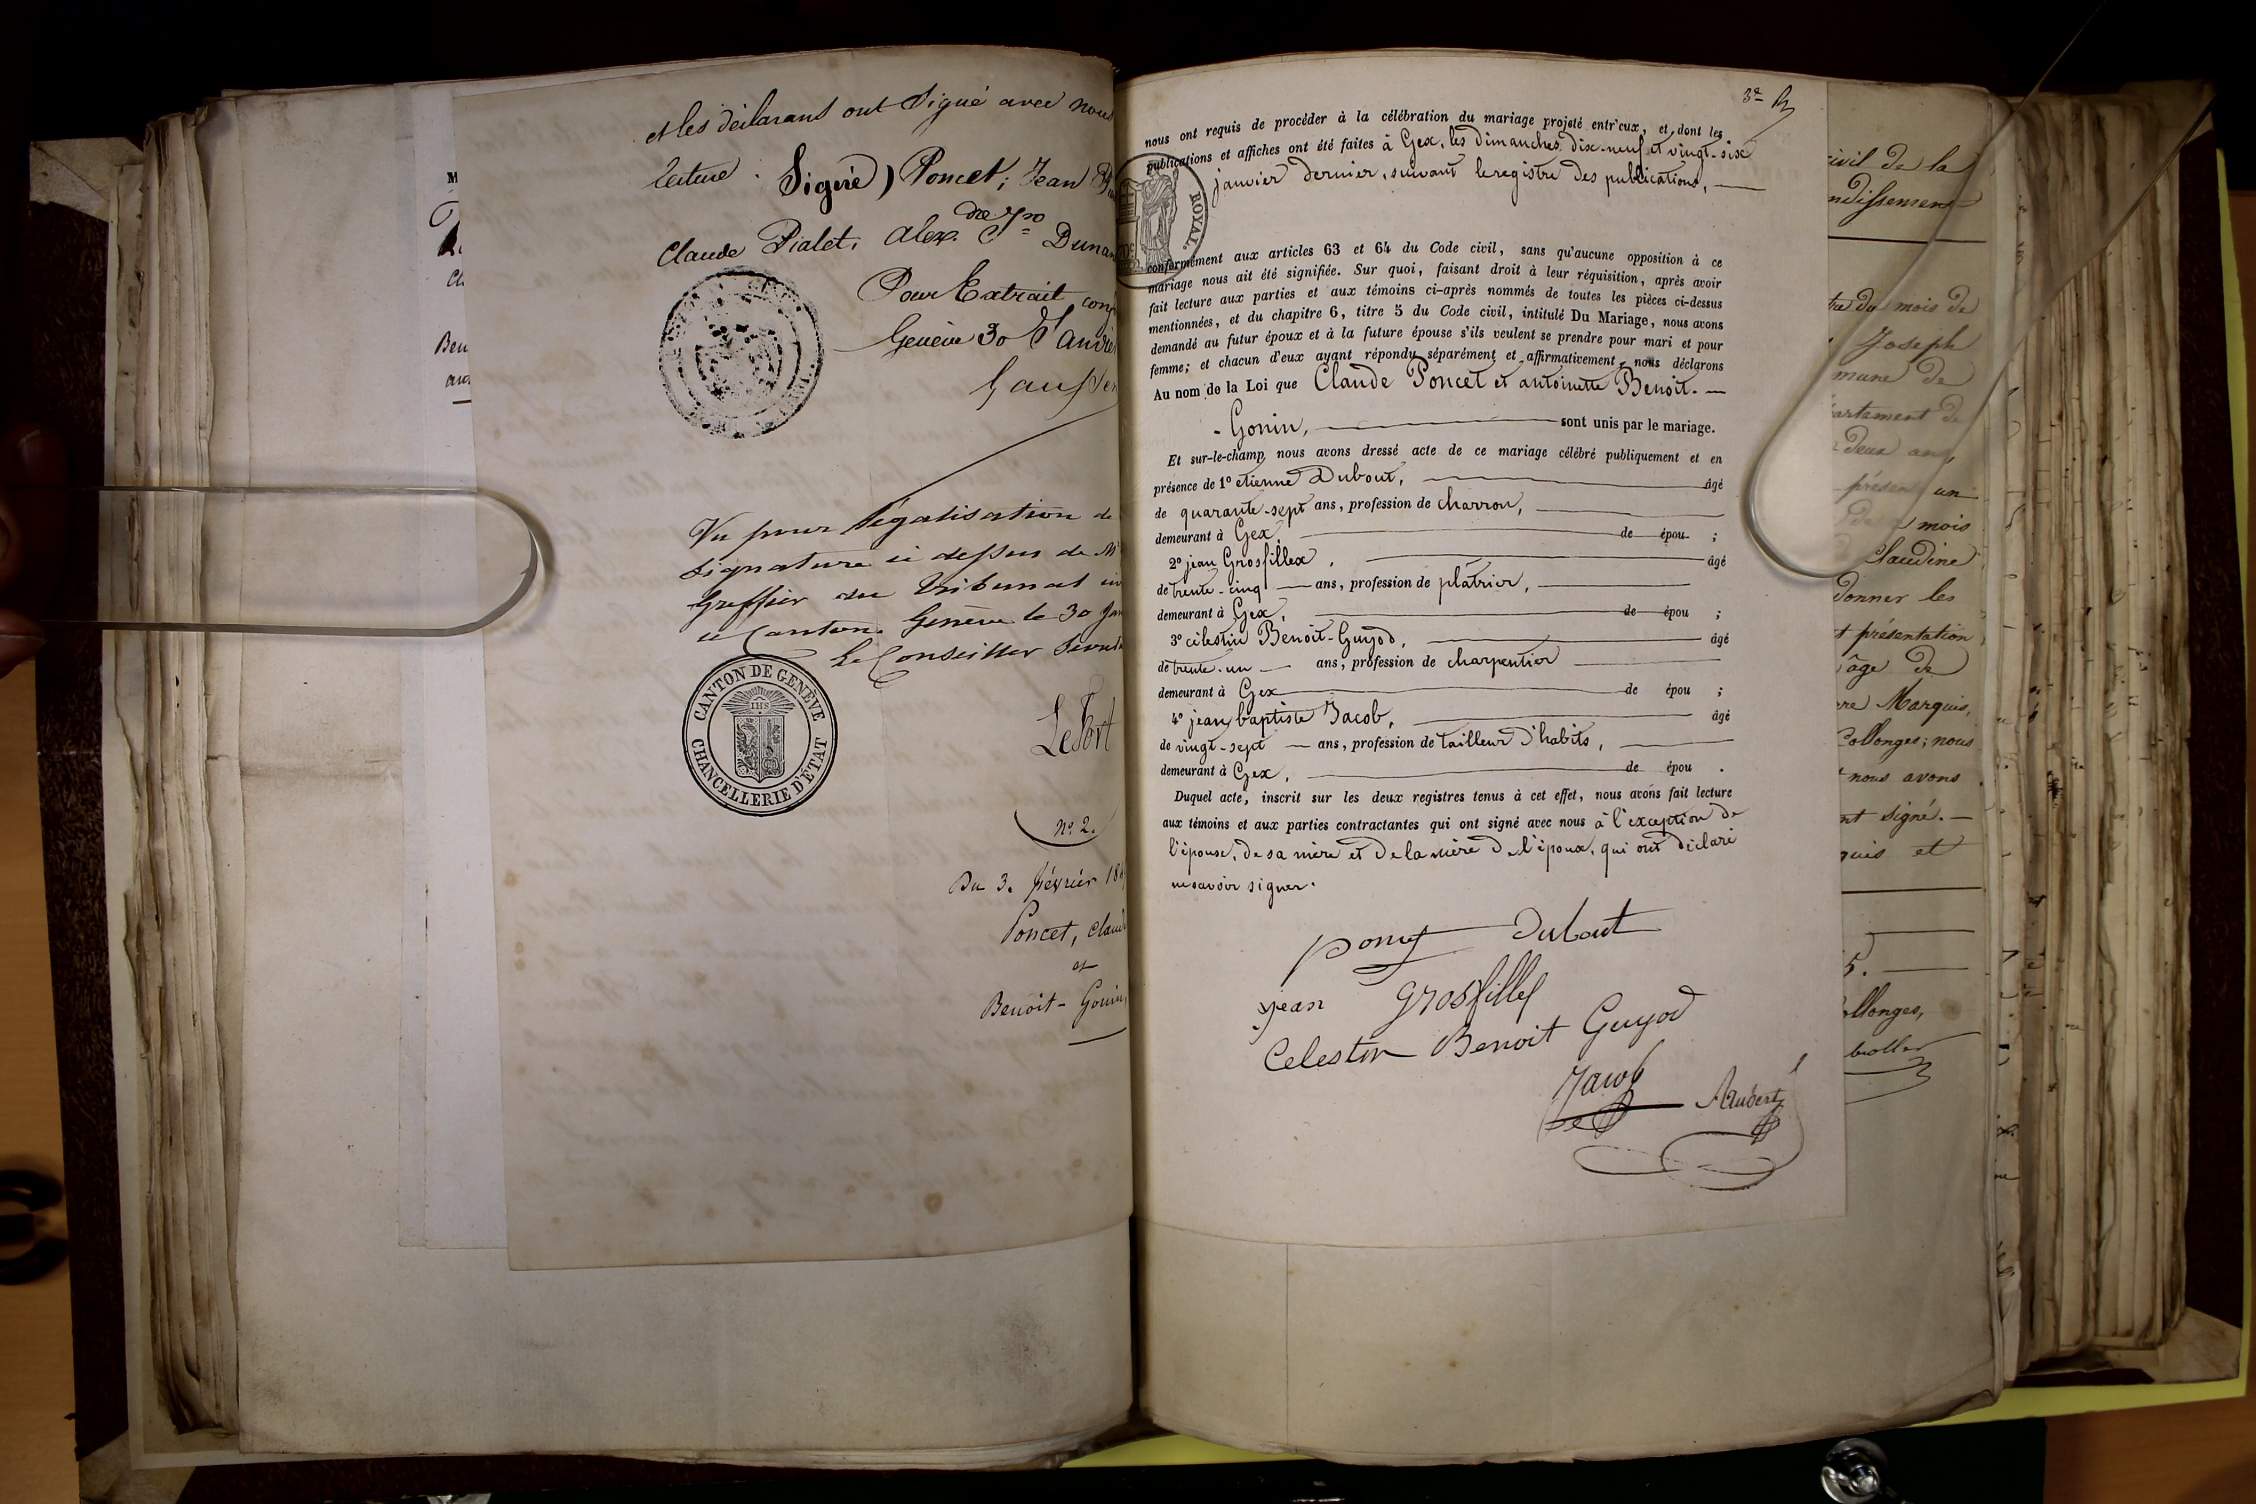 et les déclarans ont signé avec nous
lecture. Signé) Poncet; Jean
Claude Pialet, Alex.dre Dunan
Pour Extrait conf
Genève 30 Janvier
Vu pour légalisation de
signature ci dessus de Mr
greffier du tribunal
ce Canton. Genève le 30 Jan
Le Conseiller Secret
CANTON DE GENÈVE
IHS
CHANCELLERIE D'ÉTAT
Le Fort
No 2.
Du 3. février 18
Poncet, Claud
et
Benoit-Gonin,
M
Ben
3e
nous ont requis de procéder à la célébration du mariage projeté entr'eux, et dont les
publications et affiches ont été faites à Gex, les dimanches dix-neuf et vingt-six
janvier dernier, suivant le registre des publications,
ROYAL.
conformément aux articles 63 et 64 du Code civil, sans qu'aucune opposition à ce
mariage nous ait été signifiée. Sur quoi, faisant droit à leur réquisition, après avoir
fait lecture aux parties et aux témoins ci-après nommés de toutes les pièces ci-dessus
mentionnées, et du chapitre 6, titre 5 du Code civil, intitulé Du Mariage, nous avons
demandé au futur époux et à la future épouse s'ils veulent se prendre pour mari et pour
femme; et chacun d'eux ayant répondu séparément et affirmativement, nous déclarons
Au nom de la Loi que Claude Poncet et antoinette Benoit-
-Gonin, sont unis par le mariage.
Et sur-le-champ nous avons dressé acte de ce mariage célébré publiquement et en
présence de 1° etienne Dubout, âgé
de quarante-sept ans, profession de charron,
demeurant à Gex, de épou ;
2° jean Grosfillex, âgé
de trente-cinq ans, profession de plâtrier,
demeurant à Gex, de épou ;
3° célestin Benoit-Guyod, âgé
de trente-un ans, profession de charpentier
demeurant à Gex de épou ;
4° jean baptiste Jacob, âgé
de vingt-sept ans, profession de tailleur d'habits,
demeurant à Gex, de épou .
Duquel acte, inscrit sur les deux registres tenus à cet effet, nous avons fait lecture
aux témoins et aux parties contractantes qui ont signé avec nous à l'exception de
l'épouse, de sa mère et de la mère de l'époux, qui ont déclaré
ne savoir signer.
poncet Dubout
jean grosfillex
Celestin Benoit Guyod
Jacob
Aubert
civil de la
ndissement
tre du mois de
Joseph
mune de
artement de
deux ans,
présen un
de mois
Claudine
donner les
t présentation
âge de
re Marquis,
Collonges; nous
nous avons
nt signé. —
quis et
5.
ollonges,